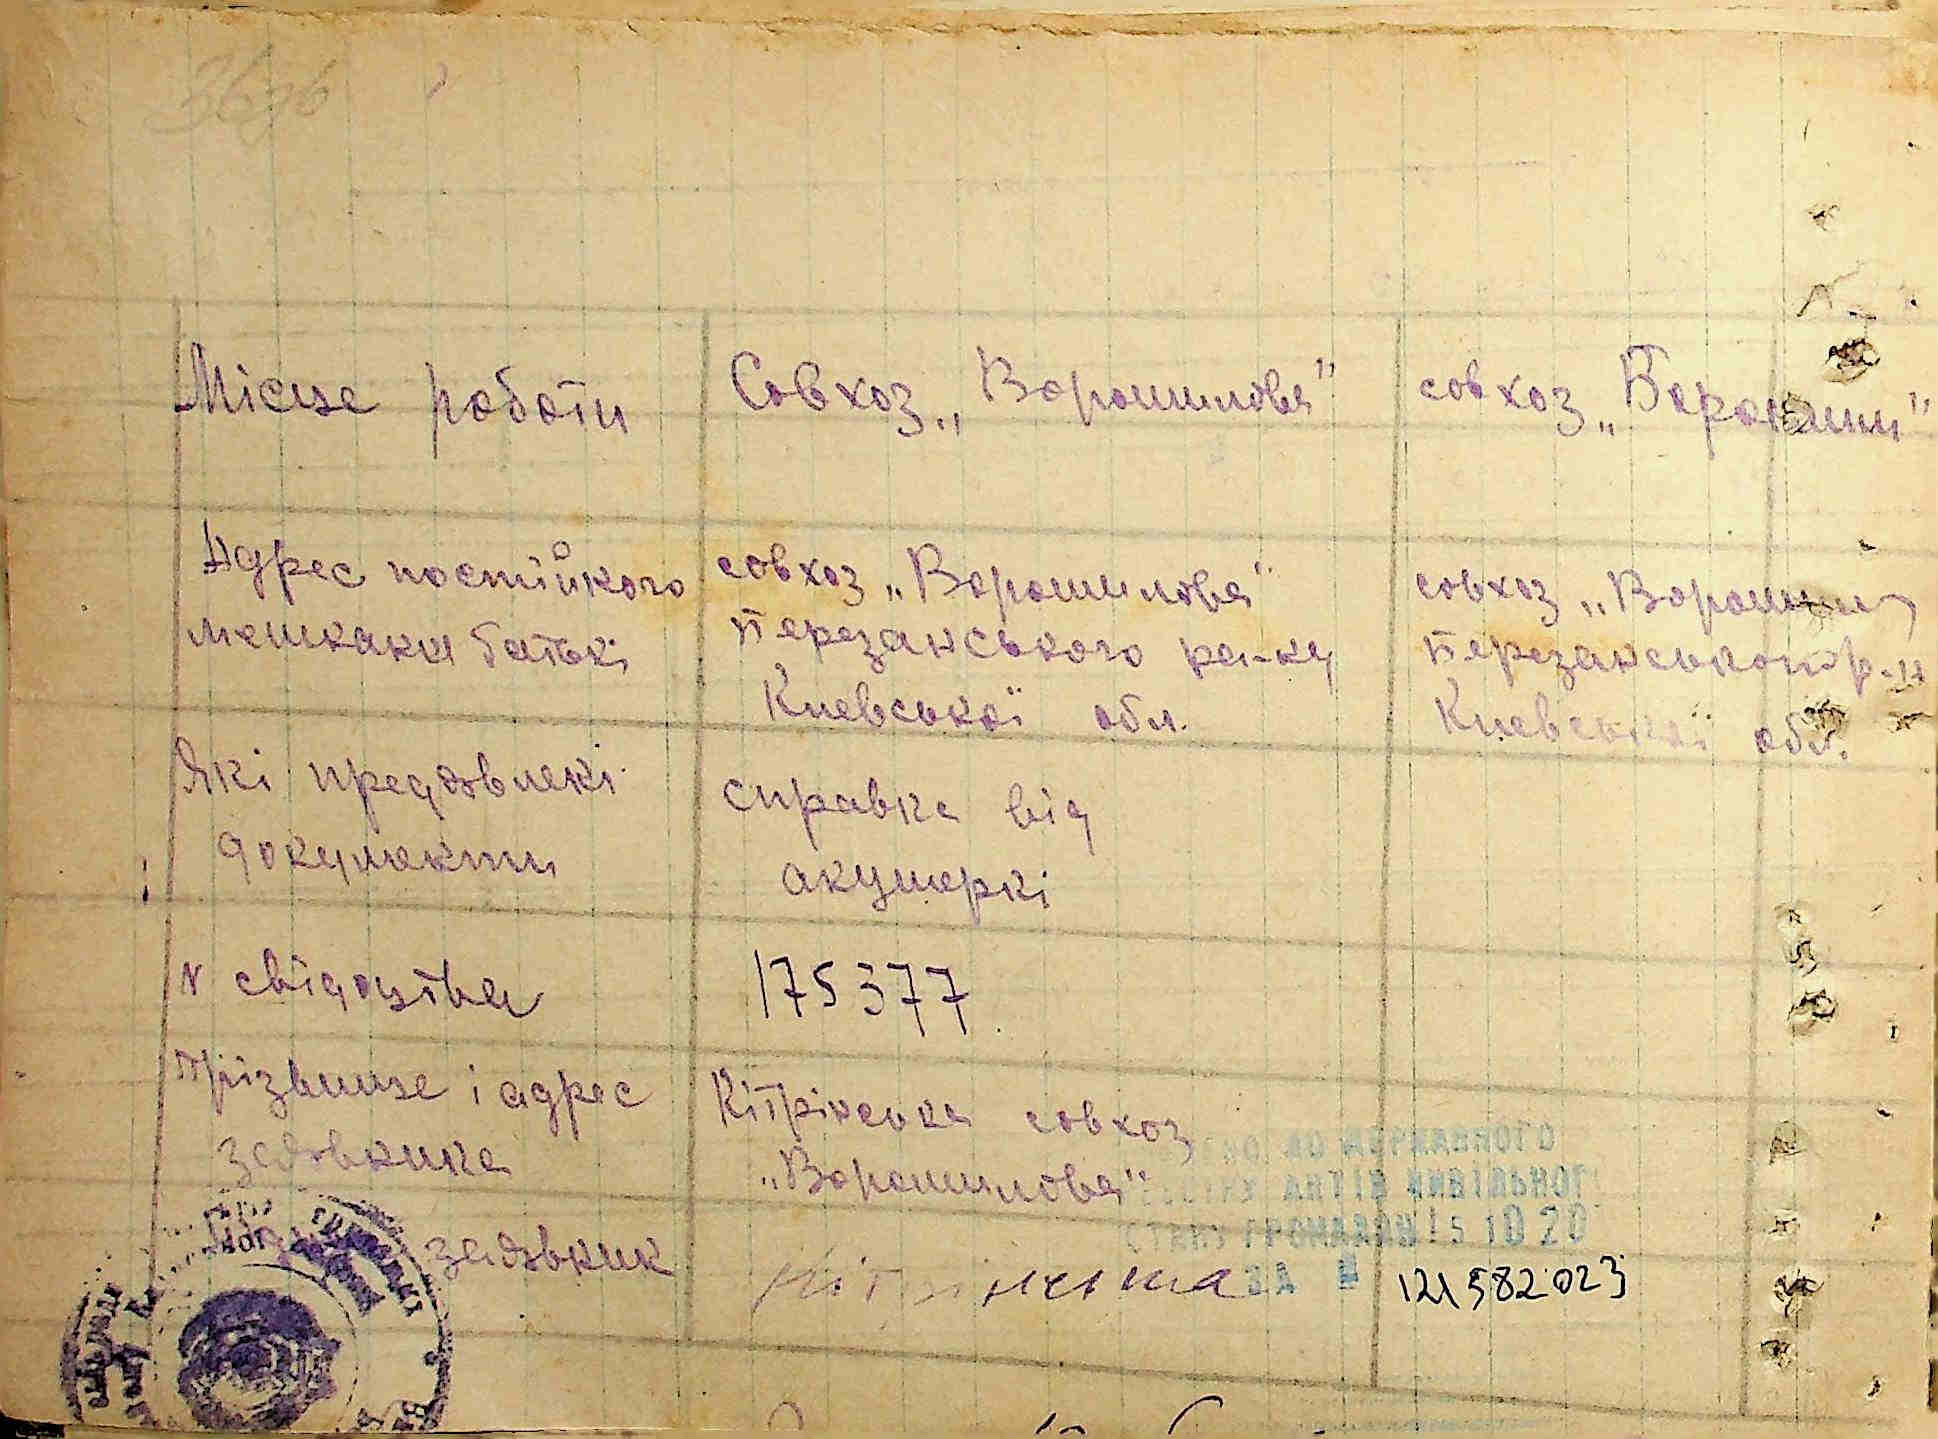 Місце роботи
Совхоз „Ворошилова"
совхоз „Ворошил"
Адрес постійного
мешкання батькі
совхоз „Ворошилова"
Березанського ра-ну
Киевської обл.
совхоз „Ворошил
Березанського р-н
Киевської обл.
Які предявлені
документи
справка від
акушеркі
N свідоцтва
175377
Прізвище і адрес
заявника
совхоз
„Ворошилова"
заявник
ДО ДЕРЖАВНОГО
АКТІВ ЦИВІЛЬНОГО
СТАНУ ГРОМАДЯН 15 10 20
ЗА №
121582023